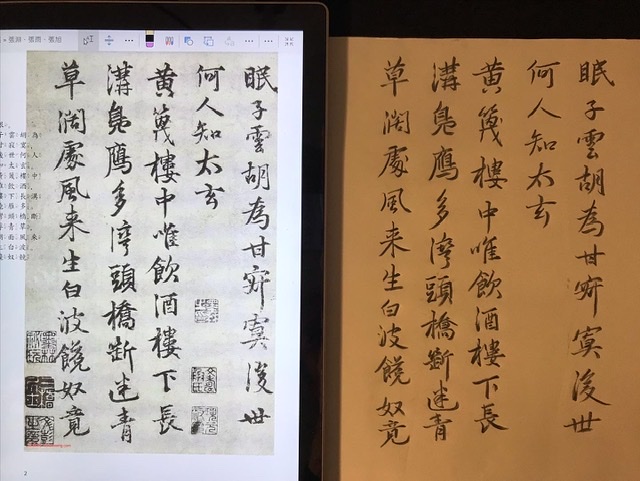 張雨、張旭
眠子雲胡為甘寂寞後世
何人知太玄
黄篾樓中唯飲酒樓下長
溝鳧鷹多湾頭橋斷迷青
草闊處風来生白波饒奴竟
2
眠子雲胡為甘寂寞後世
何人知太玄
黄篾樓中唯飲酒樓下長
溝鳧鷹多湾頭橋斷迷青
草闊處風来生白波饒奴竟